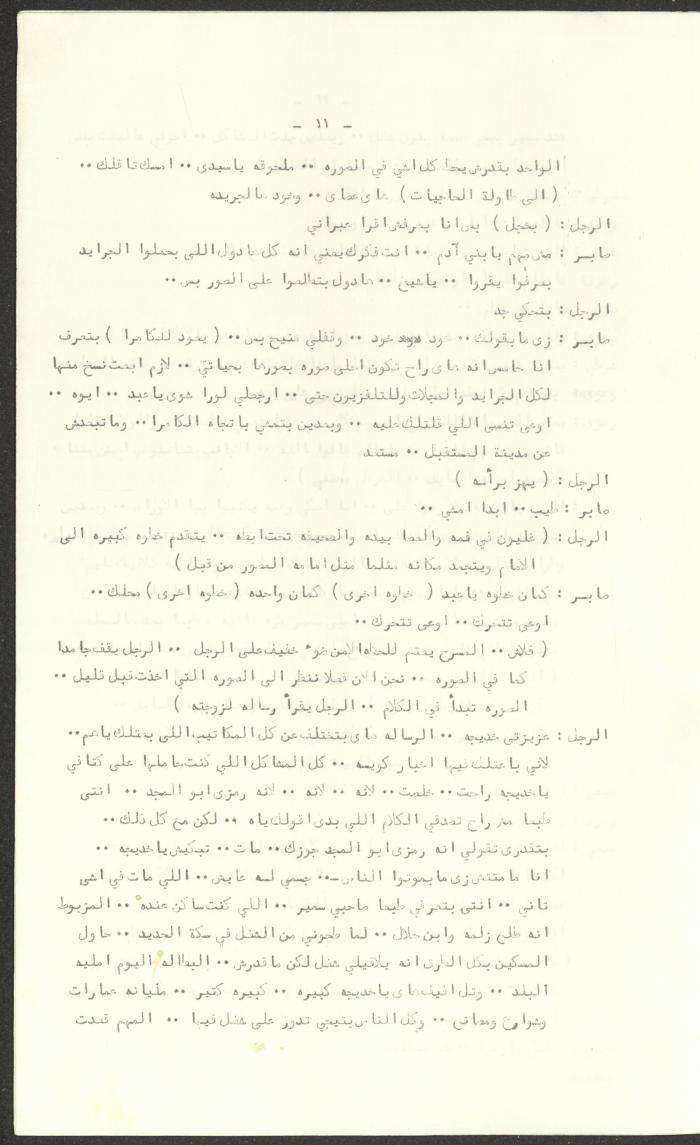 - ١١ -
الواحد بقدرش يحط كل اشي في الصوره ٠٠ ملحوقه ياسيدى ٠٠ امسك تا قلك ٠٠
( الى طاولة الحاجيات ) هاى عصاى ٠٠ وخود هالجريده
الرجل : ( بخجل ) بس انا بعرفش اقرا عبراني
صابر : مش مهم يا بني آدم ٠٠ انت فكرك يعني انه كل هادول اللي بحملوا الجرايد
بعرفوا يقروا ٠٠ ياشيخ ٠٠ هادول بتطلعوا على الصور بس ٠٠
الرجل : بتحكي جد
صابر : زى ما بقولك ٠٠ خود خود ٠٠ وقفلي منيح بس ٠٠ ( يعود للكاميرا ) بتعرف
انا حاسس انه هاى راح تكون احلى صوره بصورها بحياتي ٠٠ لازم ابعث نسخ منها
لكل الجرايد والمجلات وللتلفزيون حتى ٠٠ ارجعلي لورا شوى ياعبد ٠٠ ايوه ٠٠
اوعى تنسى اللي قلتلك عليه ٠٠ وبعدين بتمشي باتجاه الكامرا ٠٠ وما تبعدش
عن مدينة المستقبل ٠٠ مستعد
الرجل : ( يهز برأسه )
صابر : طيب ٠٠ ابدا امشي ٠٠
الرجل : ( غليون في فمه والعصا بيده والصحيفه تحت ابطه ٠٠ يتقدم خطوه كبيره الى
الامام ويتجمد مكانه مثلما مثل امامه المصور من قبل )
صابر : كمان خطوه ياعبد ( خطوه اخرى ) كمان واحده ( خطوه اخرى ) محلك ٠٠
اوعى تتحرك ٠٠ اوعى تتحرك ٠٠
( فلاش ٠٠ المسرح يعتم للحظه الا من ضوء خفيف على الرجل ٠٠ الرجل يقف جامدا
كما في الصوره ٠٠ نحن الان فعلا ننظر الى الصوره التي اخذت قبل قليل ٠٠
الصوره تبدأ في الكلام ٠٠ الرجل يقرأ رساله لزوجته )
الرجل : عزيزتي خديجه ٠٠ الرساله هاى بتختلف عن كل المكاتيب اللي بعتلك ياهم ٠٠
لاني باعتلك فيها اخبار كويسه ٠٠ كل المشاكل اللي كنت حاملها على كتافي
ياخديجه راحت ٠٠ خلصت ٠٠ لانه ٠٠ لانه ٠٠ لانه رمزى ابو المجد ٠٠ انتى
طبعا مش راح تصدقي الكلام اللي بدى اقولك ياه ٠٠ لكن مع كل ذلك ٠٠
بتقدرى تقولي انه رمزى ابو المجد جوزك ٠٠ مات ٠٠ تبكيش ياخديجه ٠٠
انا مامتتش زى ما بموتوا الناس ٠٠ جسمي لسه عايش ٠٠ اللي مات في اشي
تاني ٠٠ انتى بتعرفي طبعا صاحبي سمير ٠٠ اللي كنت ساكن عنده ٠٠ المزبوط
انه طلع زلمه وابن حلال ٠٠ لما طحوني من الشغل في سكة الحديد ٠٠ حاول
المسكين بكل الطرق انه يلاقيلي شغل لكن ما قدرش ٠٠ البطاله اليوم امليه
البلد ٠٠ وتل ابيف هاى ياخديجه كبيره ٠٠ كبيره كتير ٠٠ مليانه عمارات
وشوارع ومصانع ٠٠ وكل الناس بتيجي تدور على شغل فيها ٠٠ المهم قعدت